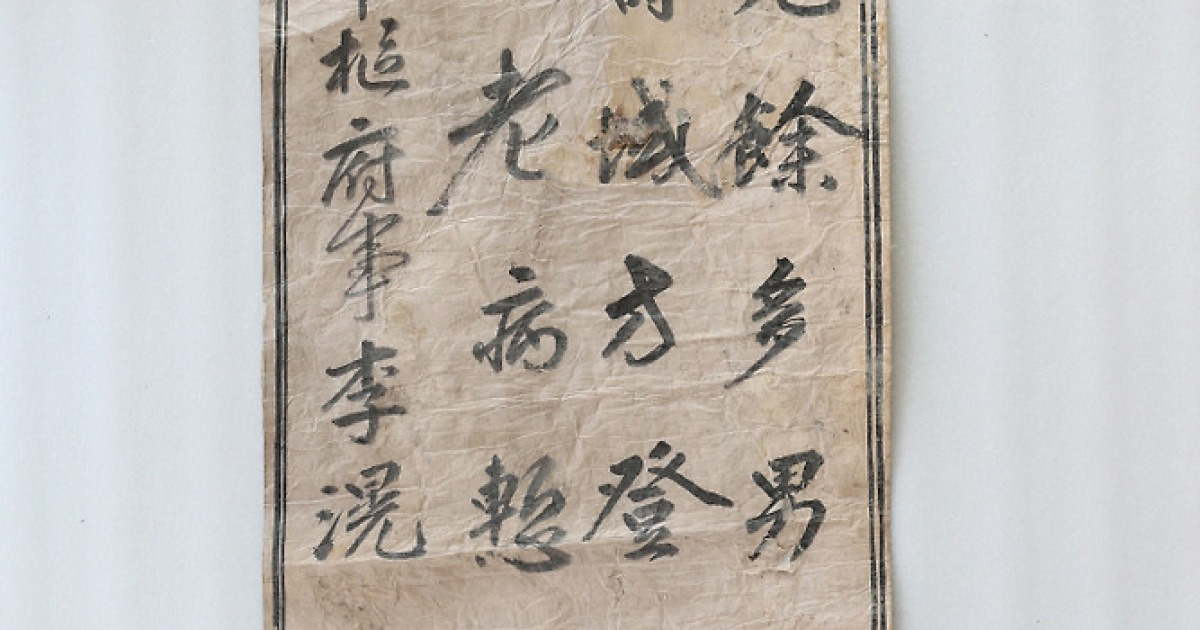 餘多男
域方登
老病慙
樞府事李滉